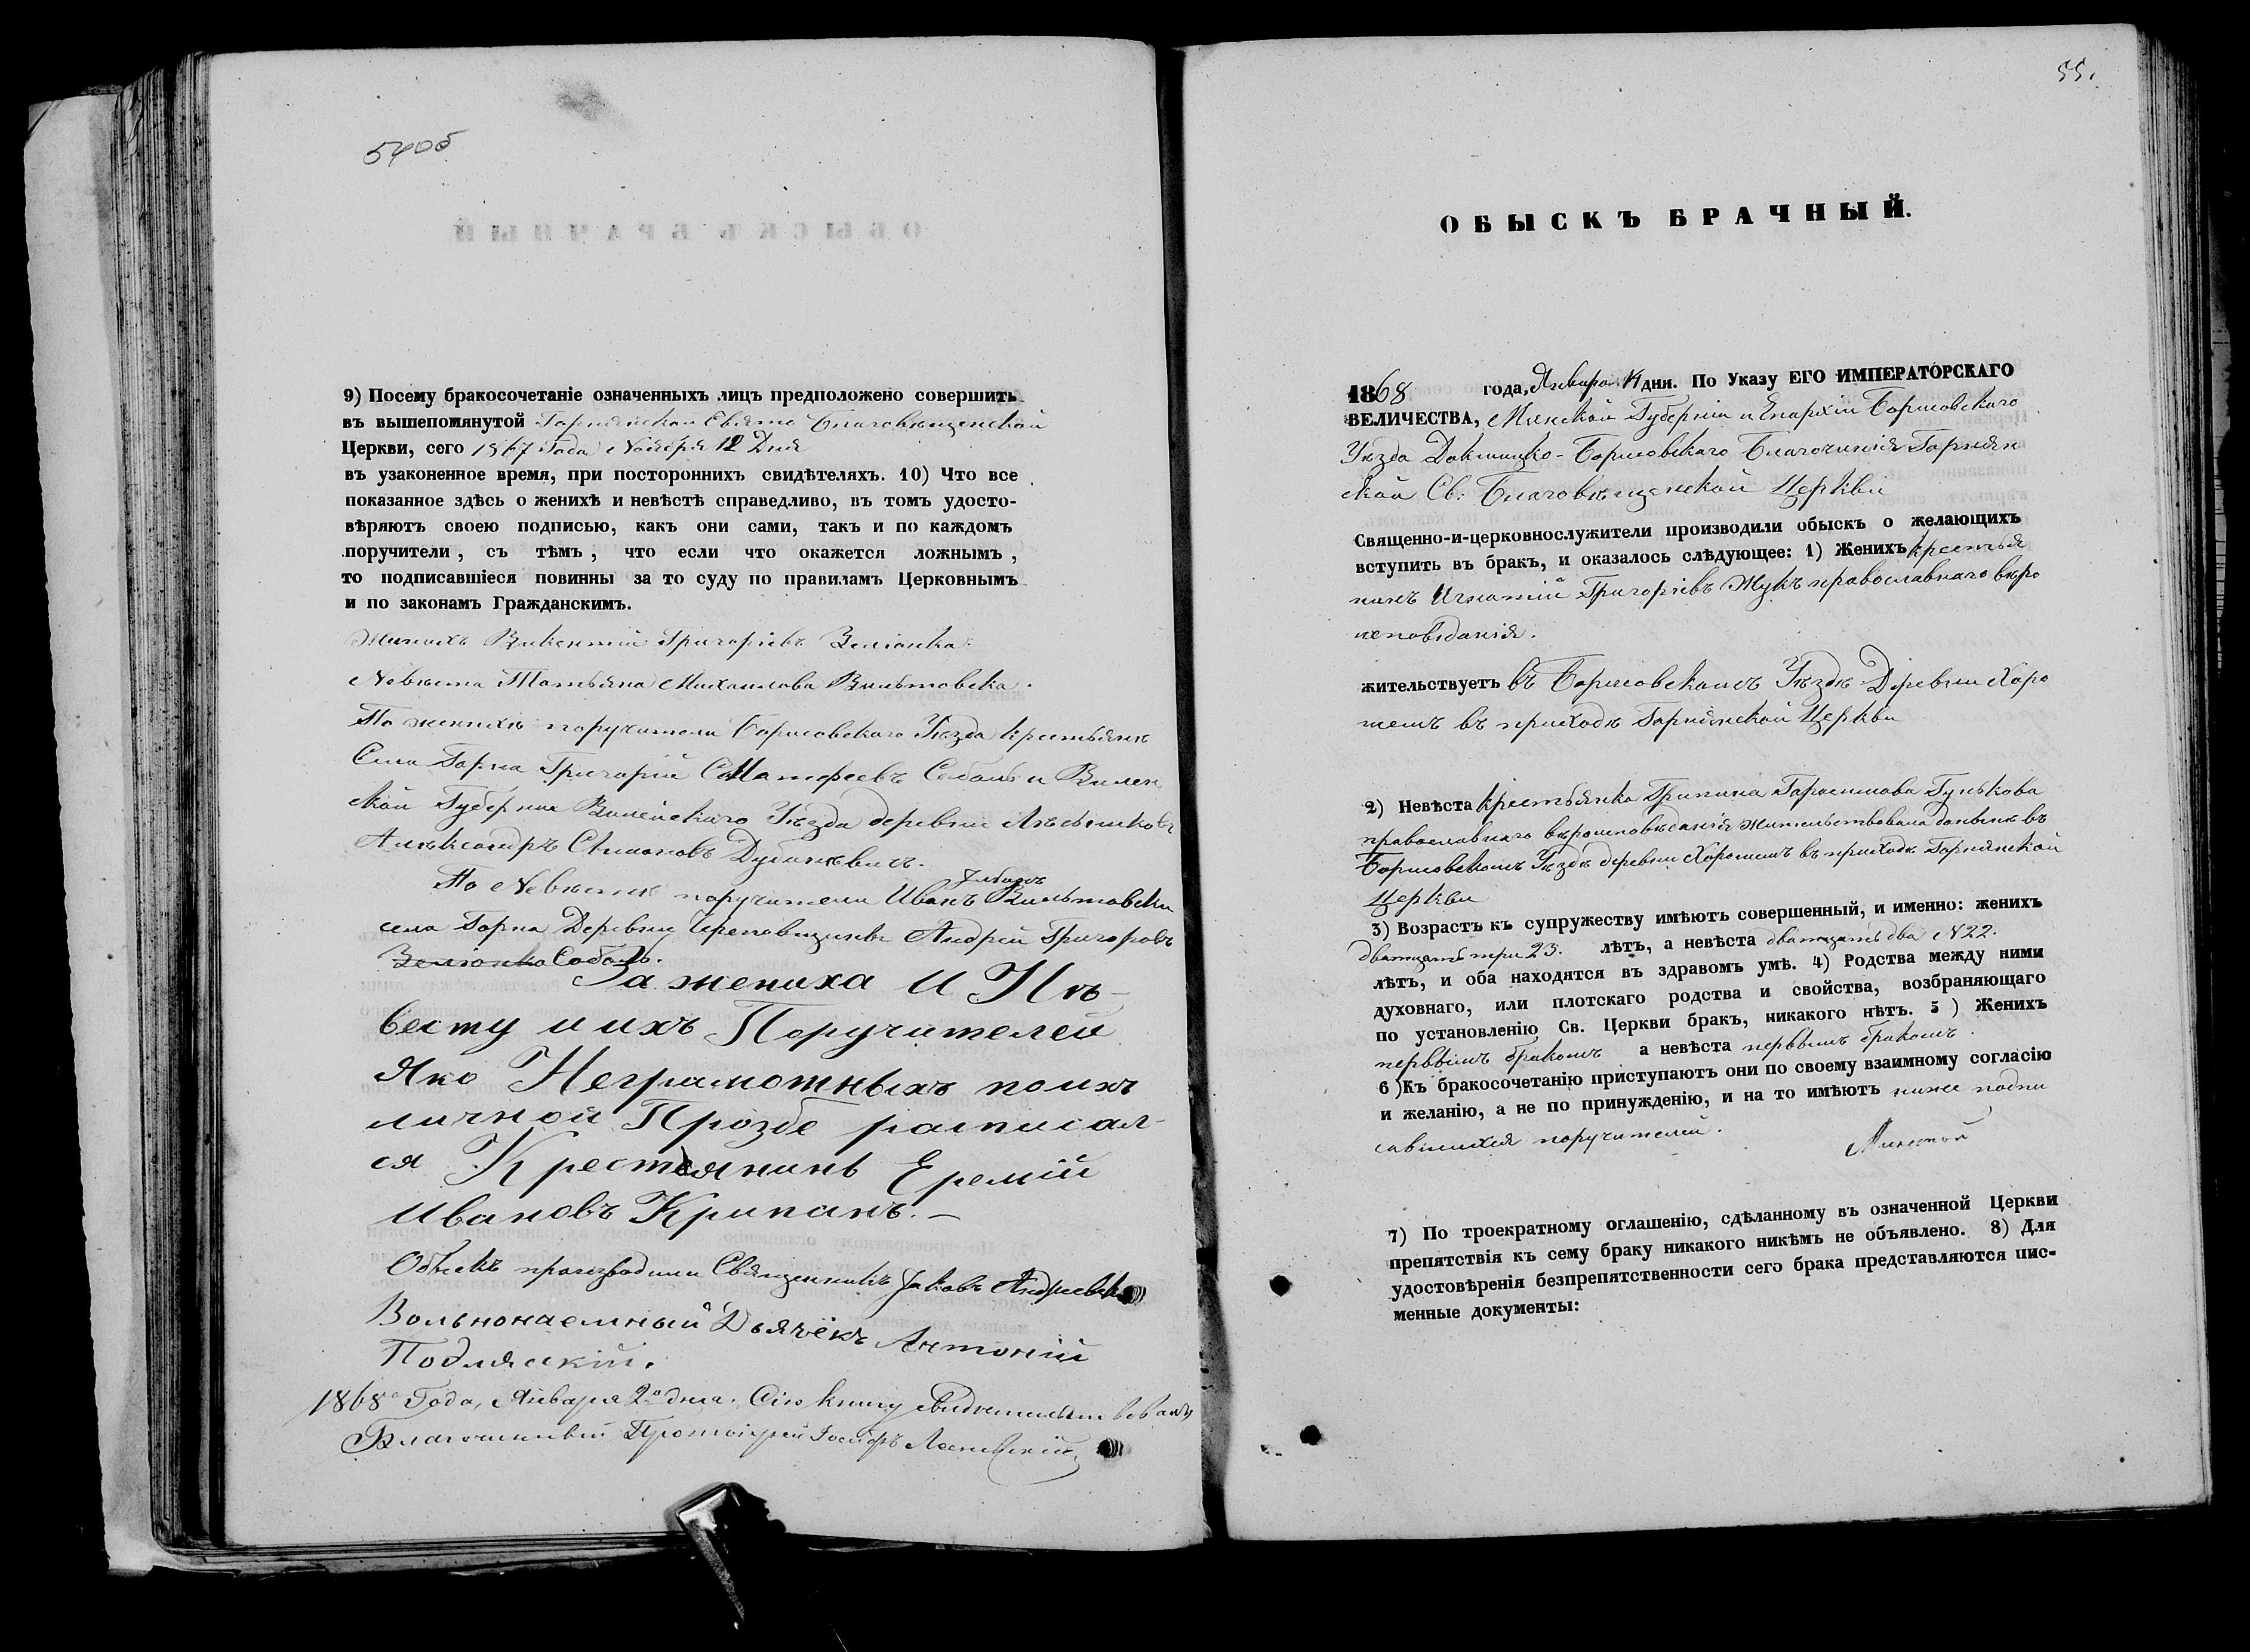 54об
9) Посему бракосочетаніе означенныхъ лицъ предположено совершить
въ вышепомянутой Горнянской Свято Благовѣщенской
Церкви, сего 1867 Года Ноября 12 Дня
въ узаконенное время, при постороннихъ свидѣтеляхъ. 10) Что все
показанное здѣсь о женихѣ и невѣстѣ справедливо, въ томъ удосто-
вѣряютъ своею подписью, какъ они сами, такъ и по каждомъ
поручители, съ тѣмъ, что если что окажется ложнымъ,
то подписавшіеся повинны за то суду по правиламъ Церковнымъ
и по законамъ Гражданскимъ.
Женихъ Викентій Григоріевъ Зеліонка
Невѣста Татьяна Михаилова Вильтовска.
По женихѣ поручители Борисовскаго Уѣзда крестьянѣ
Села Горна Григорій Матфеевъ Соболь и Вилен
ской Губерніи Вилейскаго Уѣзда деревни
Александръ Симоновъ
По Невѣстѣ поручители Иванъ Вильтовски
села Горна Деревни Андрей Григоровъ
Зеліонка Соболь.
За жениха И Нѣ-
весту и ихъ Поручителей
Яко Неграмотныхъ поихъ
личной Прозбе расписал-
ся Крестянинъ Еремій
Ивановъ Крипанъ. —
Обыскъ производили Священникъ Іаковъ
Вольнонаемный Дьячёкъ Антоній
Подляскій.
1868 Года, Января 2º дня. Сію книгу свидѣтельствовалъ
Благочинный Протоіерей Іосифъ
55.
ОБЫСКЪ БРАЧНЫЙ.
1868 года, Января 14 дня. По Указу ЕГО ИМПЕРАТОРСКАГО
ВЕЛИЧЕСТВА, Минской Губерніи и Епархіи Борисовскаго
Уѣзда Докшицко-Борисовскаго Благочинія Горнян
ской Св: Благовѣщенской Церкви
Священно-и-церковнослужители производили обыскъ о желающихъ
вступить въ бракъ, и оказалось слѣдующее: 1) Женихъ крестья
нинъ Игнатій Григоріевъ Жукъ православнаго вѣро
исповѣданія.
жительствуетъ въ Борисовскомъ Уѣздѣ Деревни Хоро
шемъ въ приходѣ Горнянской Церкви
2) Невѣста крестьянка Грипина Герасимова Гунькова
православнаго вѣроисповѣданія жительствовала доныне въ
Борисовскомъ Уѣздѣ деревни Хорошемъ въ приходѣ Горнянской
Церкви
3) Возрастъ къ супружеству имѣютъ совершенный, и именно: женихъ
двадцать три 23. лѣтъ, а невѣста двадцать два N22.
лѣтъ, и оба находятся въ здравомъ умѣ. 4) Родства между ними
духовнаго, или плотскаго родства и свойства, возбраняющаго
по установленію Св. Церкви бракъ, никакого нѣтъ. 5) Женихъ
первымъ бракомъ а невѣста первымъ бракомъ.
6) Къ бракосочетанію приступаютъ они по своему взаимному согласію
и желанію, а не по принужденію, и на то имѣютъ ниже подпи
савшихся поручителей.
7) По троекратному оглашенію, сдѣланному въ означенной Церкви
препятствія къ сему браку никакого никѣмъ не объявлено. 8) Для
удостовѣренія безпрепятственности сего брака представляются пис-
менные документы: